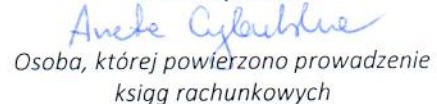 Aneta
Osoba, której powierzono prowadzenie
ksiąg rachunkowych